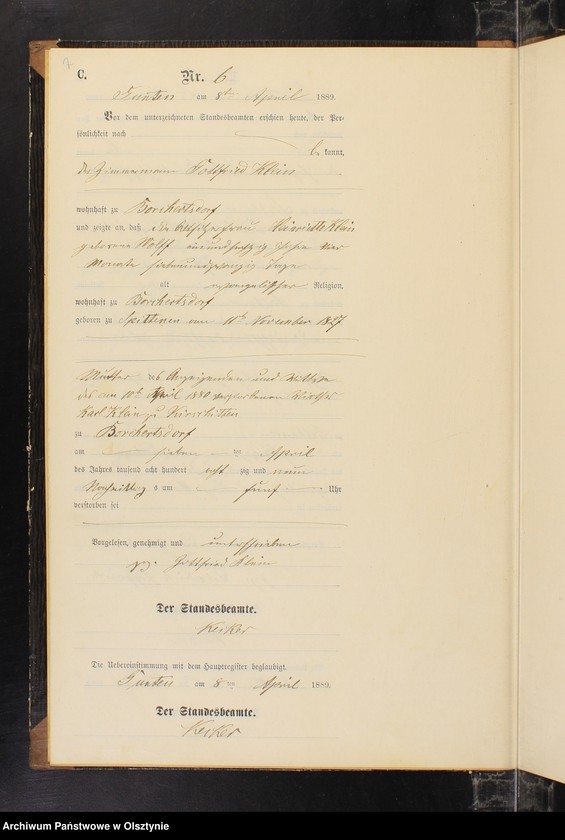 7
C.
Nr. 6
am 8ten April 1889.
Vor dem unterzeichneten Standesbeamten erschien heute, der Per-
sönlichkeit nach
be kannt,
der Zimmermann Gottfried Klein
wohnhaft zu Borchertsdorf
und zeigte an, daß die Altsitzerfrau Henriette Klein
geborene Wolff einundsechzig Jahre vier
Monate siebenundzwanzig Tage
alt evangelischer Religion,
wohnhaft zu Borchertsdorf
geboren zu Spittehnen am 11ten November 1827
Mutter des Anzeigenden und Wittwe
des am 10ten April 1880 verstorbenen
Karl Klein zu
zu Borchertsdorf
am sieben ten April
des Jahres tausend acht hundert acht zig und neun
Nachmittag s um fünf Uhr
verstorben sei
Vorgelesen, genehmigt und unterschrieben
gez. Gottfried Klein
Der Standesbeamte.
Kesker
Die Uebereinstimmung mit dem Hauptregister beglaubigt.
am 8ten April 1889.
Der Standesbeamte.
Kesker
Archiwum Państwowe w Olsztynie